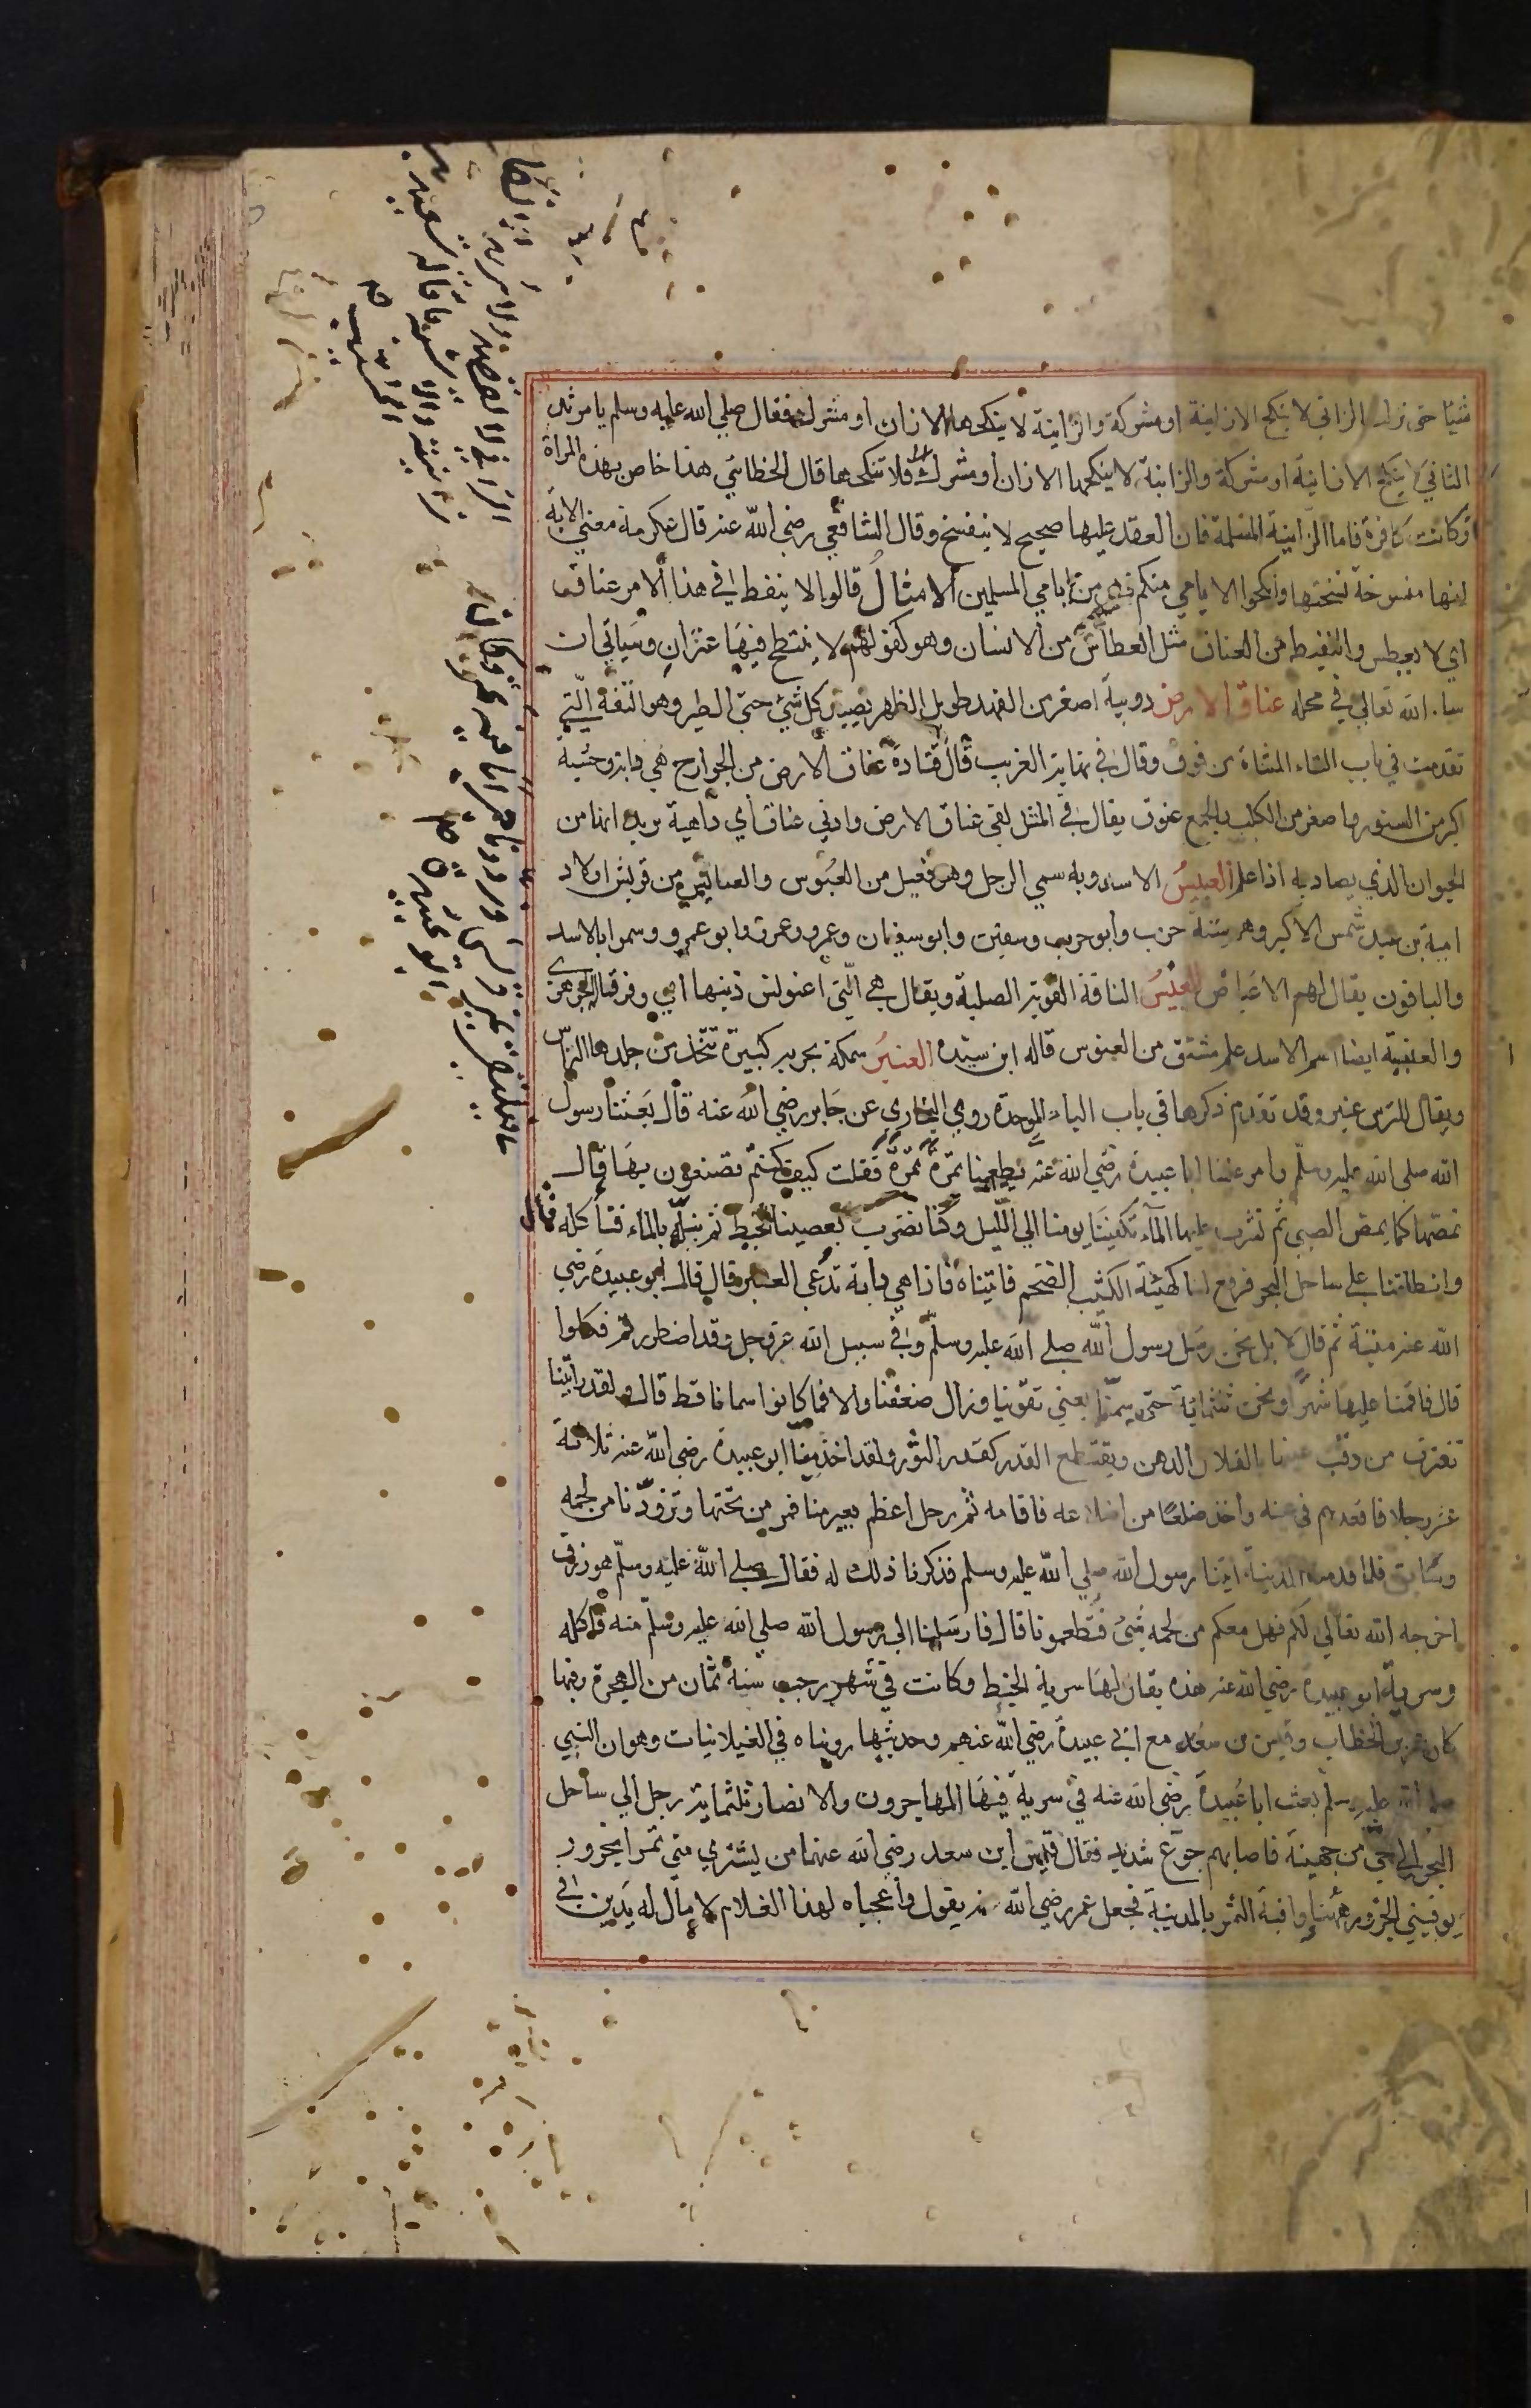 شيئا حتى نزلت الزاني لا ينكح الا زانية او مشركة والزانية لا ينكحها الا زان او مشرك فقال صلي الله عليه وسلم يا مرثد
الزاني لا ينكح الا زانية او مشركة والزانية لا ينكحها الا زان او مشرك فلا تنكحها قال الخطابي هذا خاص بهذه المراة
وكانت كافرة فاما الزانية المسلمة فان العقد عليها صحيح لا ينفسخ وقال الشافعي رضي الله عنه قال عكرمة معنى الاية
انها منسوخة نسختها وانكحوا الايامي منكم فهي من ايامي المسلمين الامثال قالوا لا ينفط في هذا الامر عناق
اي لا يعطس والنفيط من العناق مثل العطاس من الانسان وهو كقولهم لا ينتطح فيها عنزان وسياتي ان
شاء الله تعالي في محله عناق الارض دويبة اصغر من الفهد طويل الظهر يصيد كل شئ حتى الطير وهو التفة التي
تقدمت في باب التاء المثناة من فوق وقال في نهاية الغريب قال قتادة عناق الارض من الجوارح هي دابة وحشية
اكبر من السنور واصغر من الكلب والجمع عنوق يقال في المثل لقي عناق الارض واذني عناق اي داهية يريد انها من
الحيوان الذي يصاد به اذا علم العنبس الاسد وبه سمي الرجل وهو فنعيل من العبوس والعنابس من قريش اولاد
امية بن عبد شمس الاكبر وهم ستة حرب وأبو حرب وسفين وابو سفيان وعمرو وابو عمرو وسموا بالاسد
والباقون يقال لهم الاعياص العنس الناقة القوية الصلبة ويقال هي التي اعنونس ذنبها اي وفر قاله الجوهري
والعنبسة ايضا اسم الاسد علم مشتق من العبوس قاله ابن سيده العنبر سمكة بحرية كبيرة تتخذ من جلدها التراس
ويقال للترس عنبر وقد تقدم ذكرها في باب الباء الموحدة روي البخاري عن جابر رضي الله عنه قال بعثنا رسول
الله صلى الله عليه وسلم وامر علينا ابا عبيدة رضي الله عنه يطعمنا تمرة تمرة فقلت كيف كنتم تصنعون بها قال
نمصها كما يمص الصبي ثم نشرب عليها الماء تكفينا يومنا الي الليل وكنا نضرب بعصينا الخبط ثم نبله بالماء فنأكله قال
وانطلقنا على ساحل البحر فرفع لنا كهيئة الكثيب الضخم فاتيناه فاذا هي دابة تدعي العنبر قال قال ابو عبيدة رضي
الله عنه ميتة ثم قال لا بل نحن رسل رسول الله صلي الله عليه وسلم وفي سبيل الله عز وجل وقد اضطررتم فكلوا
قال فاقمنا عليها شهرا ونحن ثلثماية حتى سمنا يعني تقوينا وزال ضعفنا والا فما كانوا سمانا قط قال ولقد رأيتنا
نغترف من وقب عينها بالقلال الدهن ويقتطع القدر كقدر الثور ولقد اخذ منا ابو عبيدة رضي الله عنه ثلاثة
عشر رجلا فاقعدهم في عينه واخذ ضلعا من اضلاعه فاقامه ثم رحل اعظم بعير منا فمر من تحتها وتزودنا من لحمه
وشايق فلما قدمنا المدينة اتينا رسول الله صلي الله عليه وسلم فذكرنا ذلك له فقال صلى الله عليه وسلم هو رزق
اخرجه الله تعالي لكم فهل معكم من لحمه شئ فتطعمونا قال فارسلنا الي رسول الله صلي الله عليه وسلم منه فاكله
وسرية ابو عبيدة رضي الله عنه هذه يقال لها سرية الخبط وكانت في شهر رجب سنة ثمان من الهجرة وفيها
كان عمر بن الخطاب وقيس بن سعد مع ابي عبيدة رضي الله عنهم وحديثها رويناه في الغيلانيات وهو ان النبي
صلى الله عليه وسلم بعث ابا عبيدة رضي الله عنه في سرية فيها المهاجرون والانصار ثلثماية رجل الي ساحل
البحر الي حي من جهينة فاصابهم جوع شديد فقال قيس ابن سعد رضي الله عنهما من يشتري مني تمرا بجزور
يوفيني الجزور ههنا واوفيه التمر بالمدينة فجعل عمر رضي الله عنه يقول واعجباه لهذا الغلام لا مال له يدين في